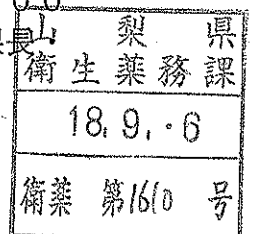 長
山梨県
衛生薬務課
18.9.·6
衛薬 第1610号